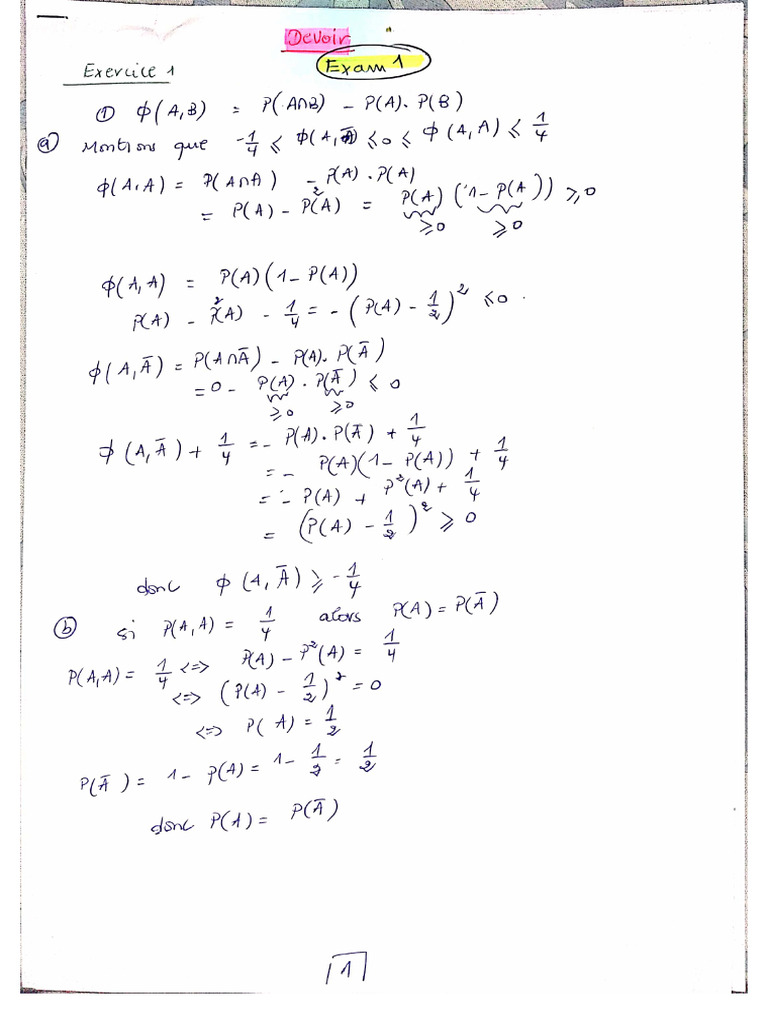 Devoir
Exam 1
Exercice 1
① ϕ(A,B) = P(A∩B) - P(A). P(B)
ⓐ Montrons que -1/4 ≤ ϕ(A, Ā) ≤ 0 ≤ ϕ(A,A) ≤ 1/4
ϕ(A,A) = P(A∩A) - P(A) . P(A)
= P(A) - P²(A) = P(A) (1 - P(A)) ≥ 0
≥0 ≥0
ϕ(A,A) = P(A)(1 - P(A))
P(A) - P²(A) - 1/4 = - (P(A) - 1/2)² ≤ 0 .
ϕ(A, Ā) = P(A∩Ā) - P(A). P(Ā)
= 0 - P(A) . P(Ā) ≤ 0
≥0 ≥0
ϕ(A, Ā) + 1/4 = - P(A). P(Ā) + 1/4
= - P(A)(1 - P(A)) + 1/4
= - P(A) + P²(A) + 1/4
= (P(A) - 1/2)² ≥ 0
donc ϕ(A, Ā) ≥ -1/4
ⓑ si P(A,A) = 1/4 alors P(A) = P(Ā)
P(A,A) = 1/4 <=> P(A) - P²(A) = 1/4
<=> (P(A) - 1/2)² = 0
<=> P(A) = 1/2
P(Ā) = 1 - P(A) = 1 - 1/2 = 1/2
donc P(A) = P(Ā)
1